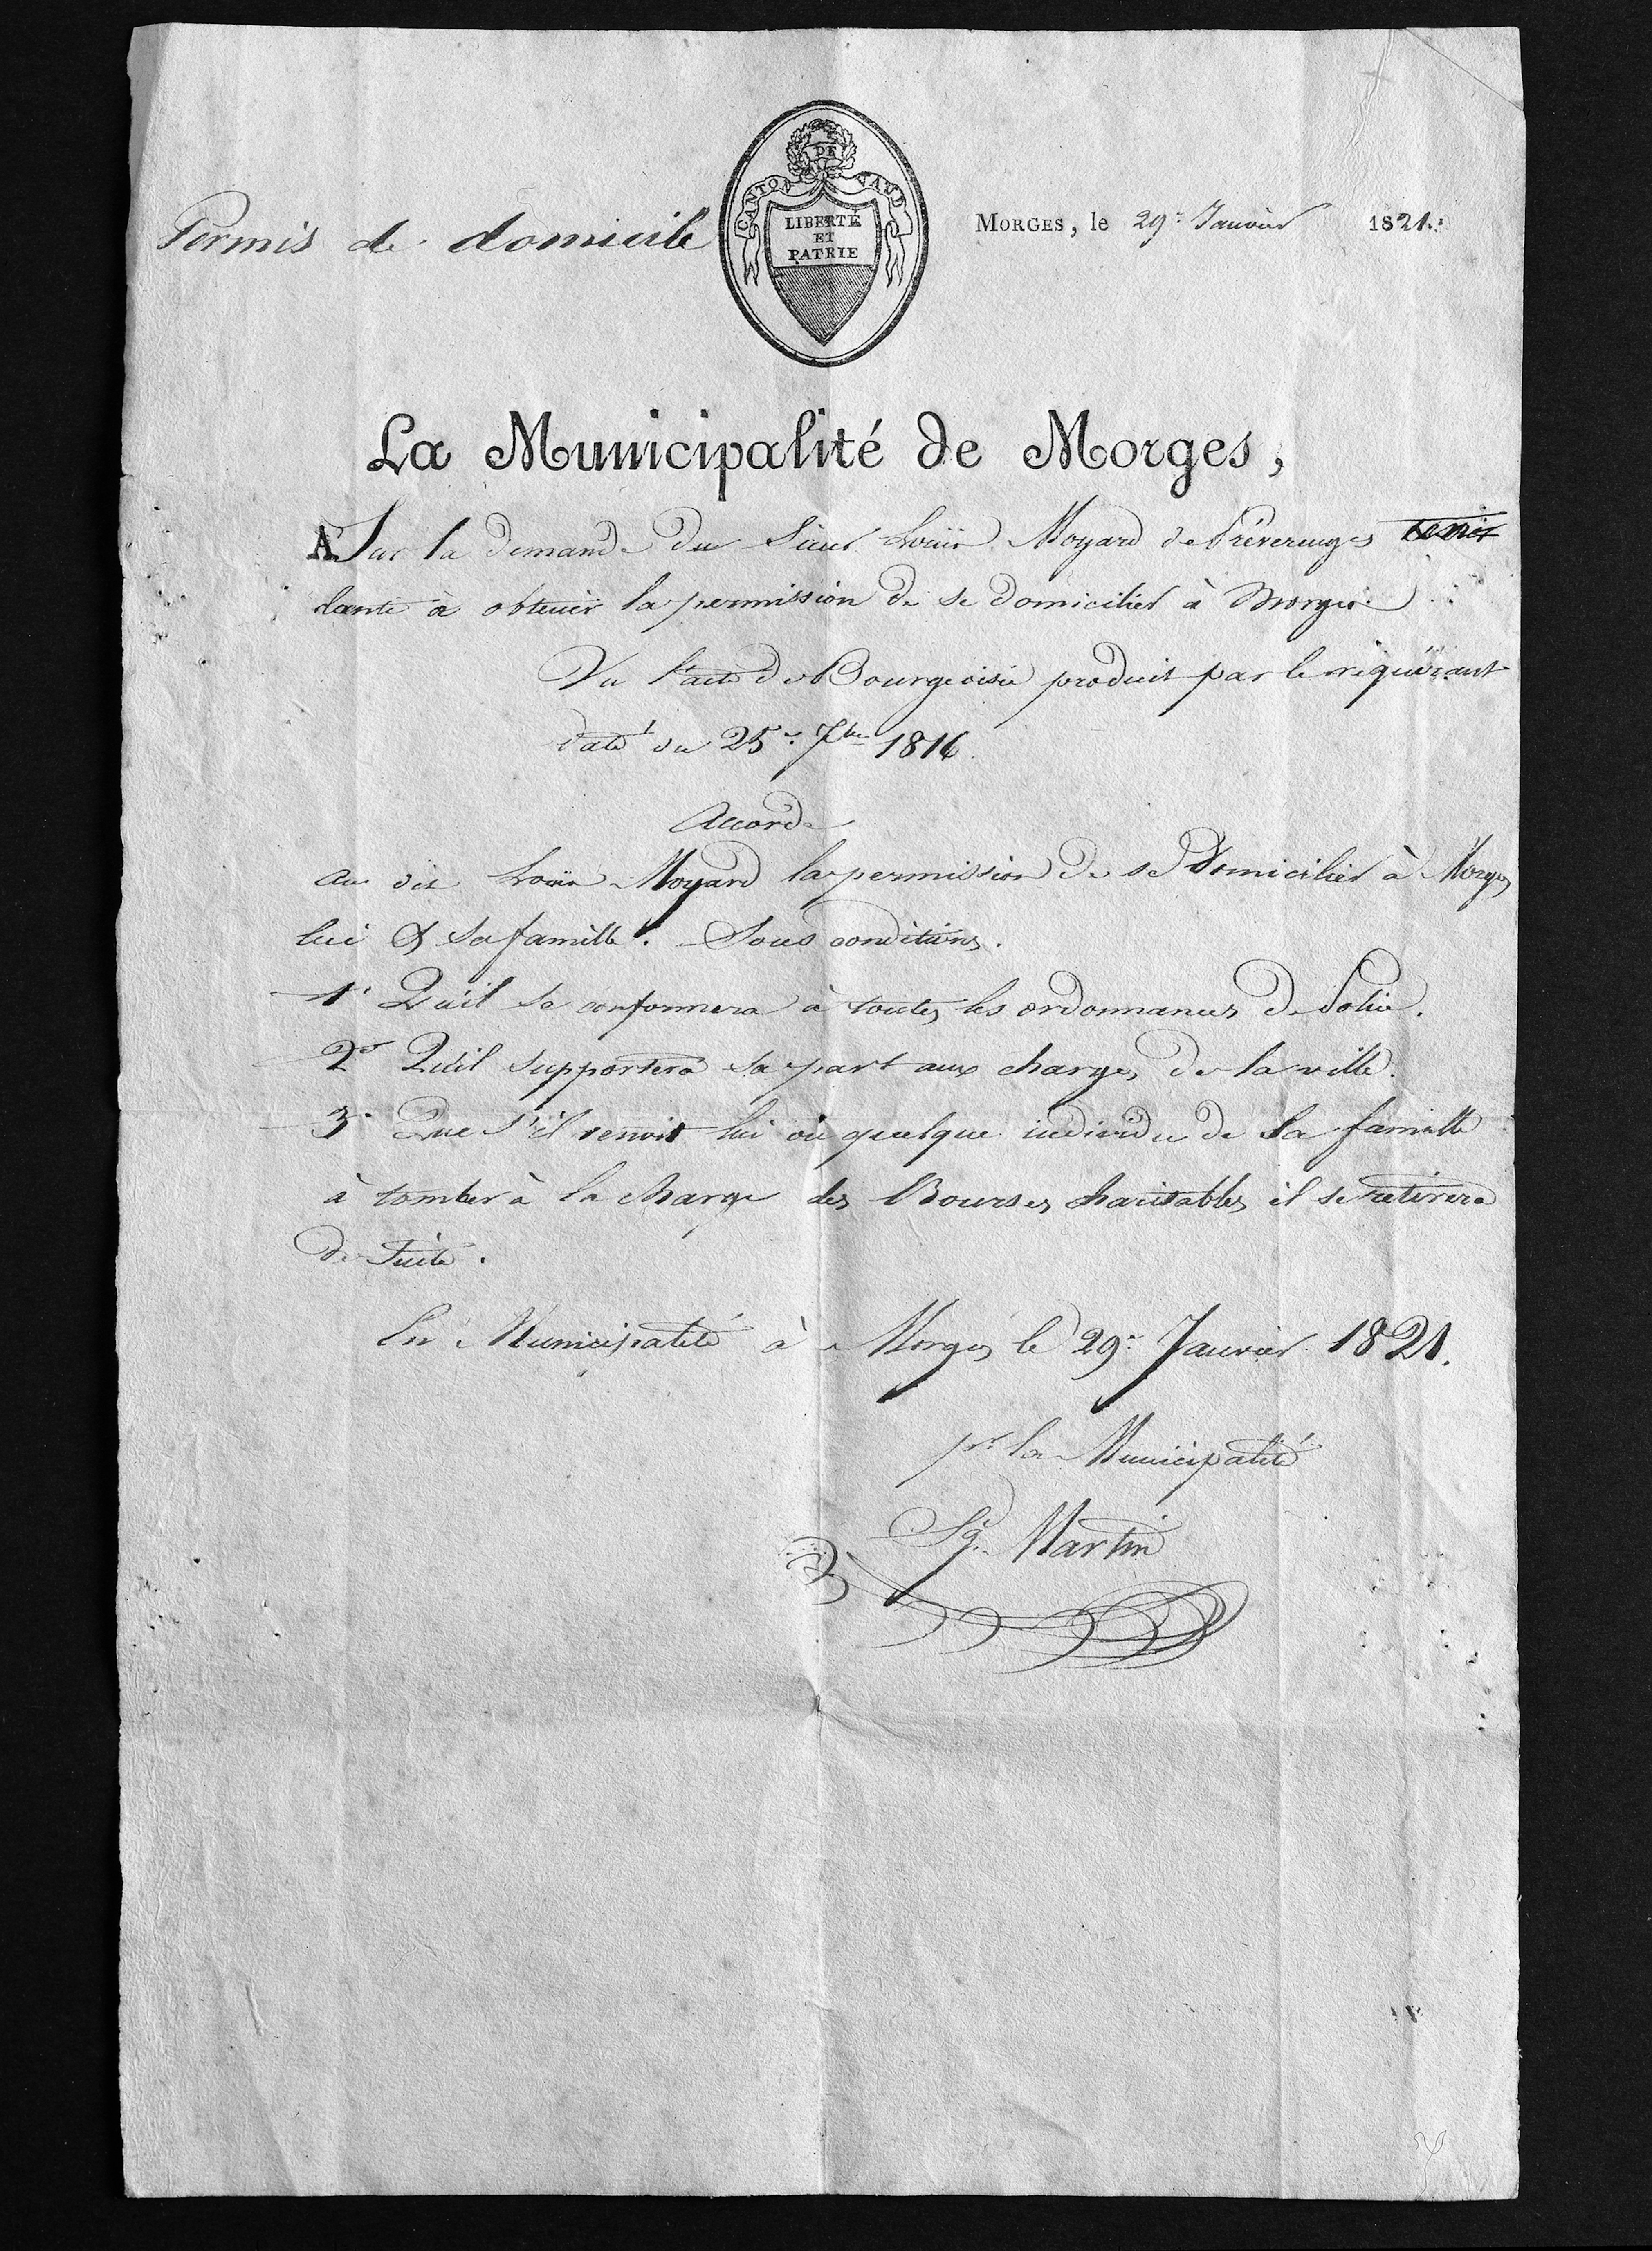 Permis de domicile
CANTON DE VAUD
LIBERTÉ
ET
PATRIE
MORGES, le 29e Janvier 1821.
La Municipalité de Morges,
A Sur la demande du Sieur Louis Moyard de Préverenges
dante à obtenir la permission de se domicilier à Morges
Vu l'acte de Bourgeoisie produit par le requérant
daté du 25e 7bre 1816.
Accorde
au dit Louis Moyard la permission de se domicilier à Morges
lui & sa famille. Sous conditions.
1o Qu'il se conformera à toutes les ordonnances de Police.
2o Qu'il supportera sa part aux charges de la ville.
3o Que s'il venoit lui ou quelque individu de sa famille
à tomber à la charge des Bourses charitables il se retirera
de suite.
En Municipalité à Morges le 29e Janvier 1821.
pr. la Municipalité
Sg. Martin